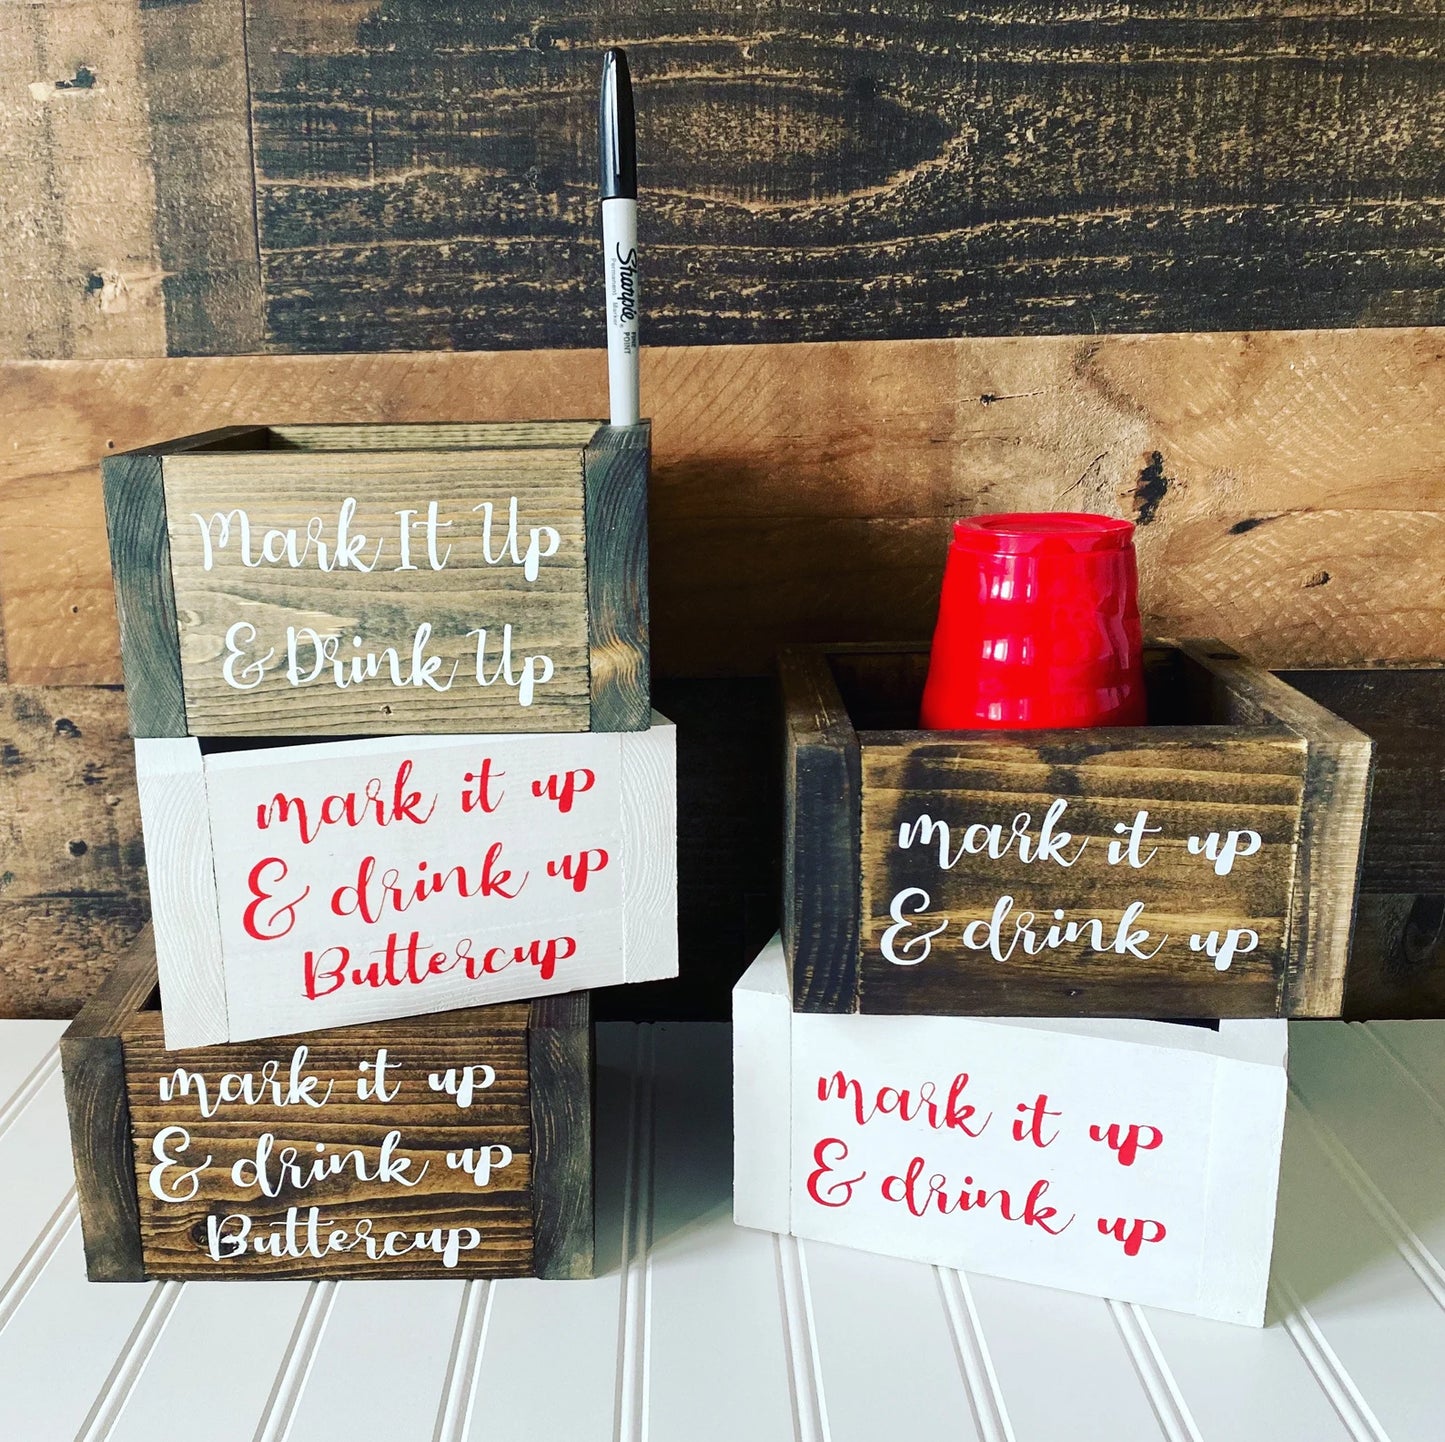 Sharpie
Permanent Marker
FINE
POINT
Mark It Up
& Drink Up
mark it up
& drink up
Buttercup
mark it up
& drink up
Buttercup
mark it up
& drink up
mark it up
& drink up